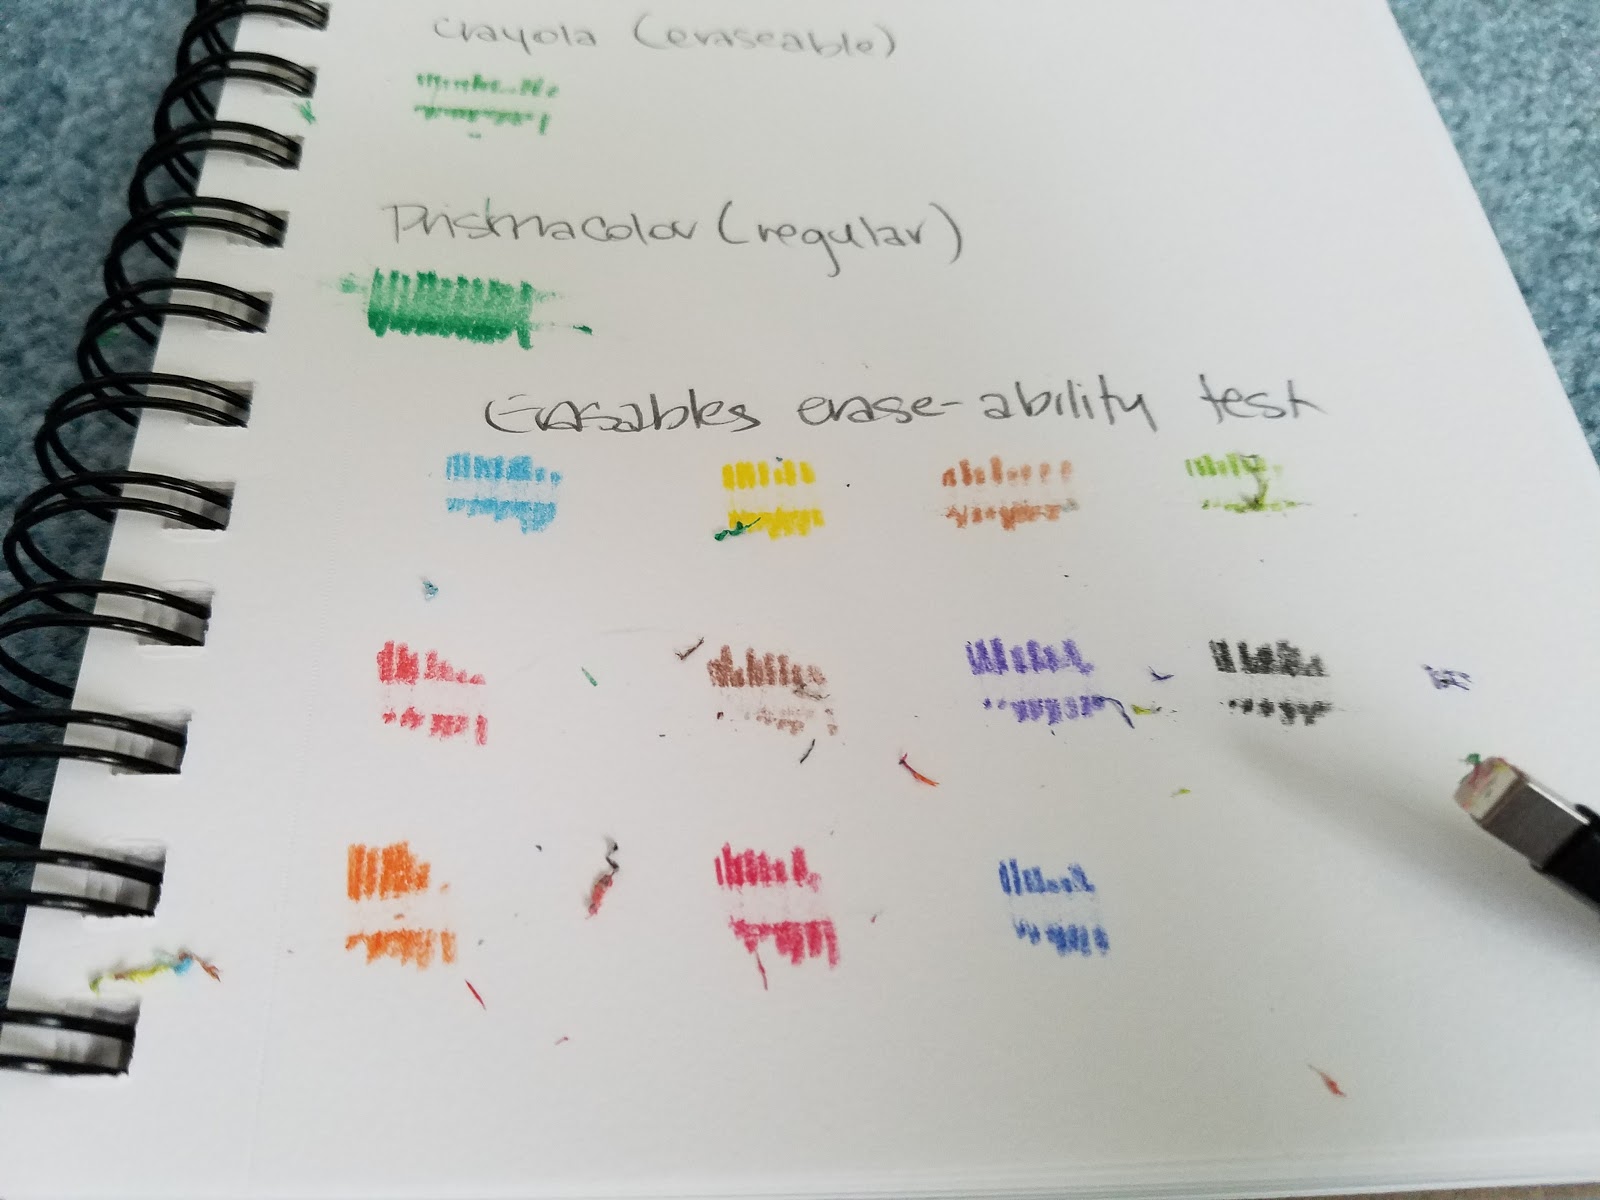 crayola (eraseable)
Prismacolor (regular)
Erasables erase-ability test